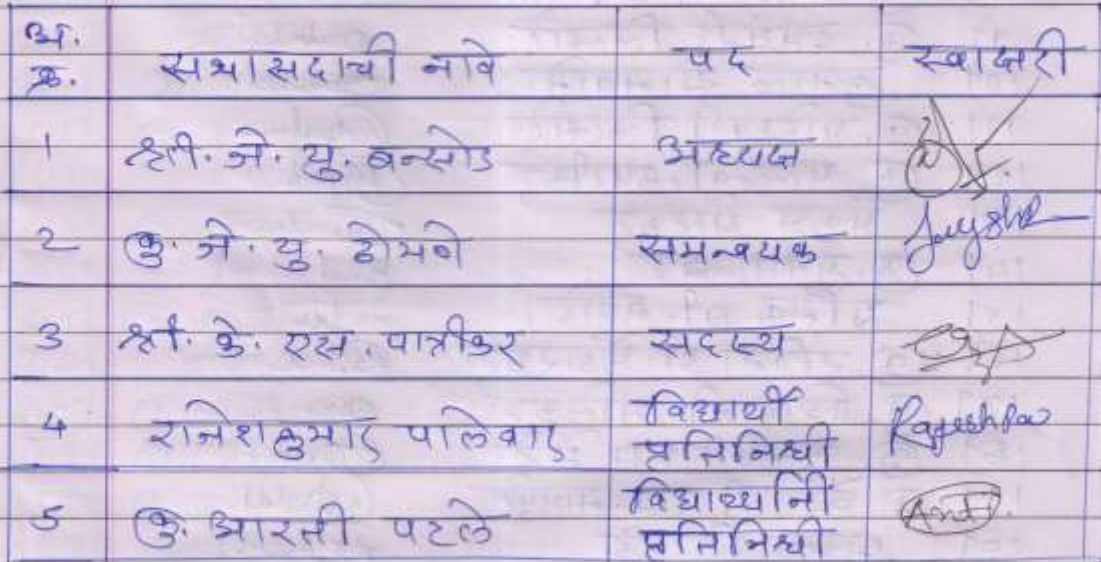 अ.
क्र. सभासदाची नावे पद स्वाक्षरी
1 श्री. जे. यु. बन्सोड अध्यक्ष
2 कु. जे. यु. ढोमणे समन्वयक
3 श्री. के. एस. पात्रीकर सदस्य
4 राजेशकुमार पालेवार विद्यार्थी
प्रतिनिधी
5 कु. आरती पटले विद्यार्थ्यीनी
प्रतिनिधी